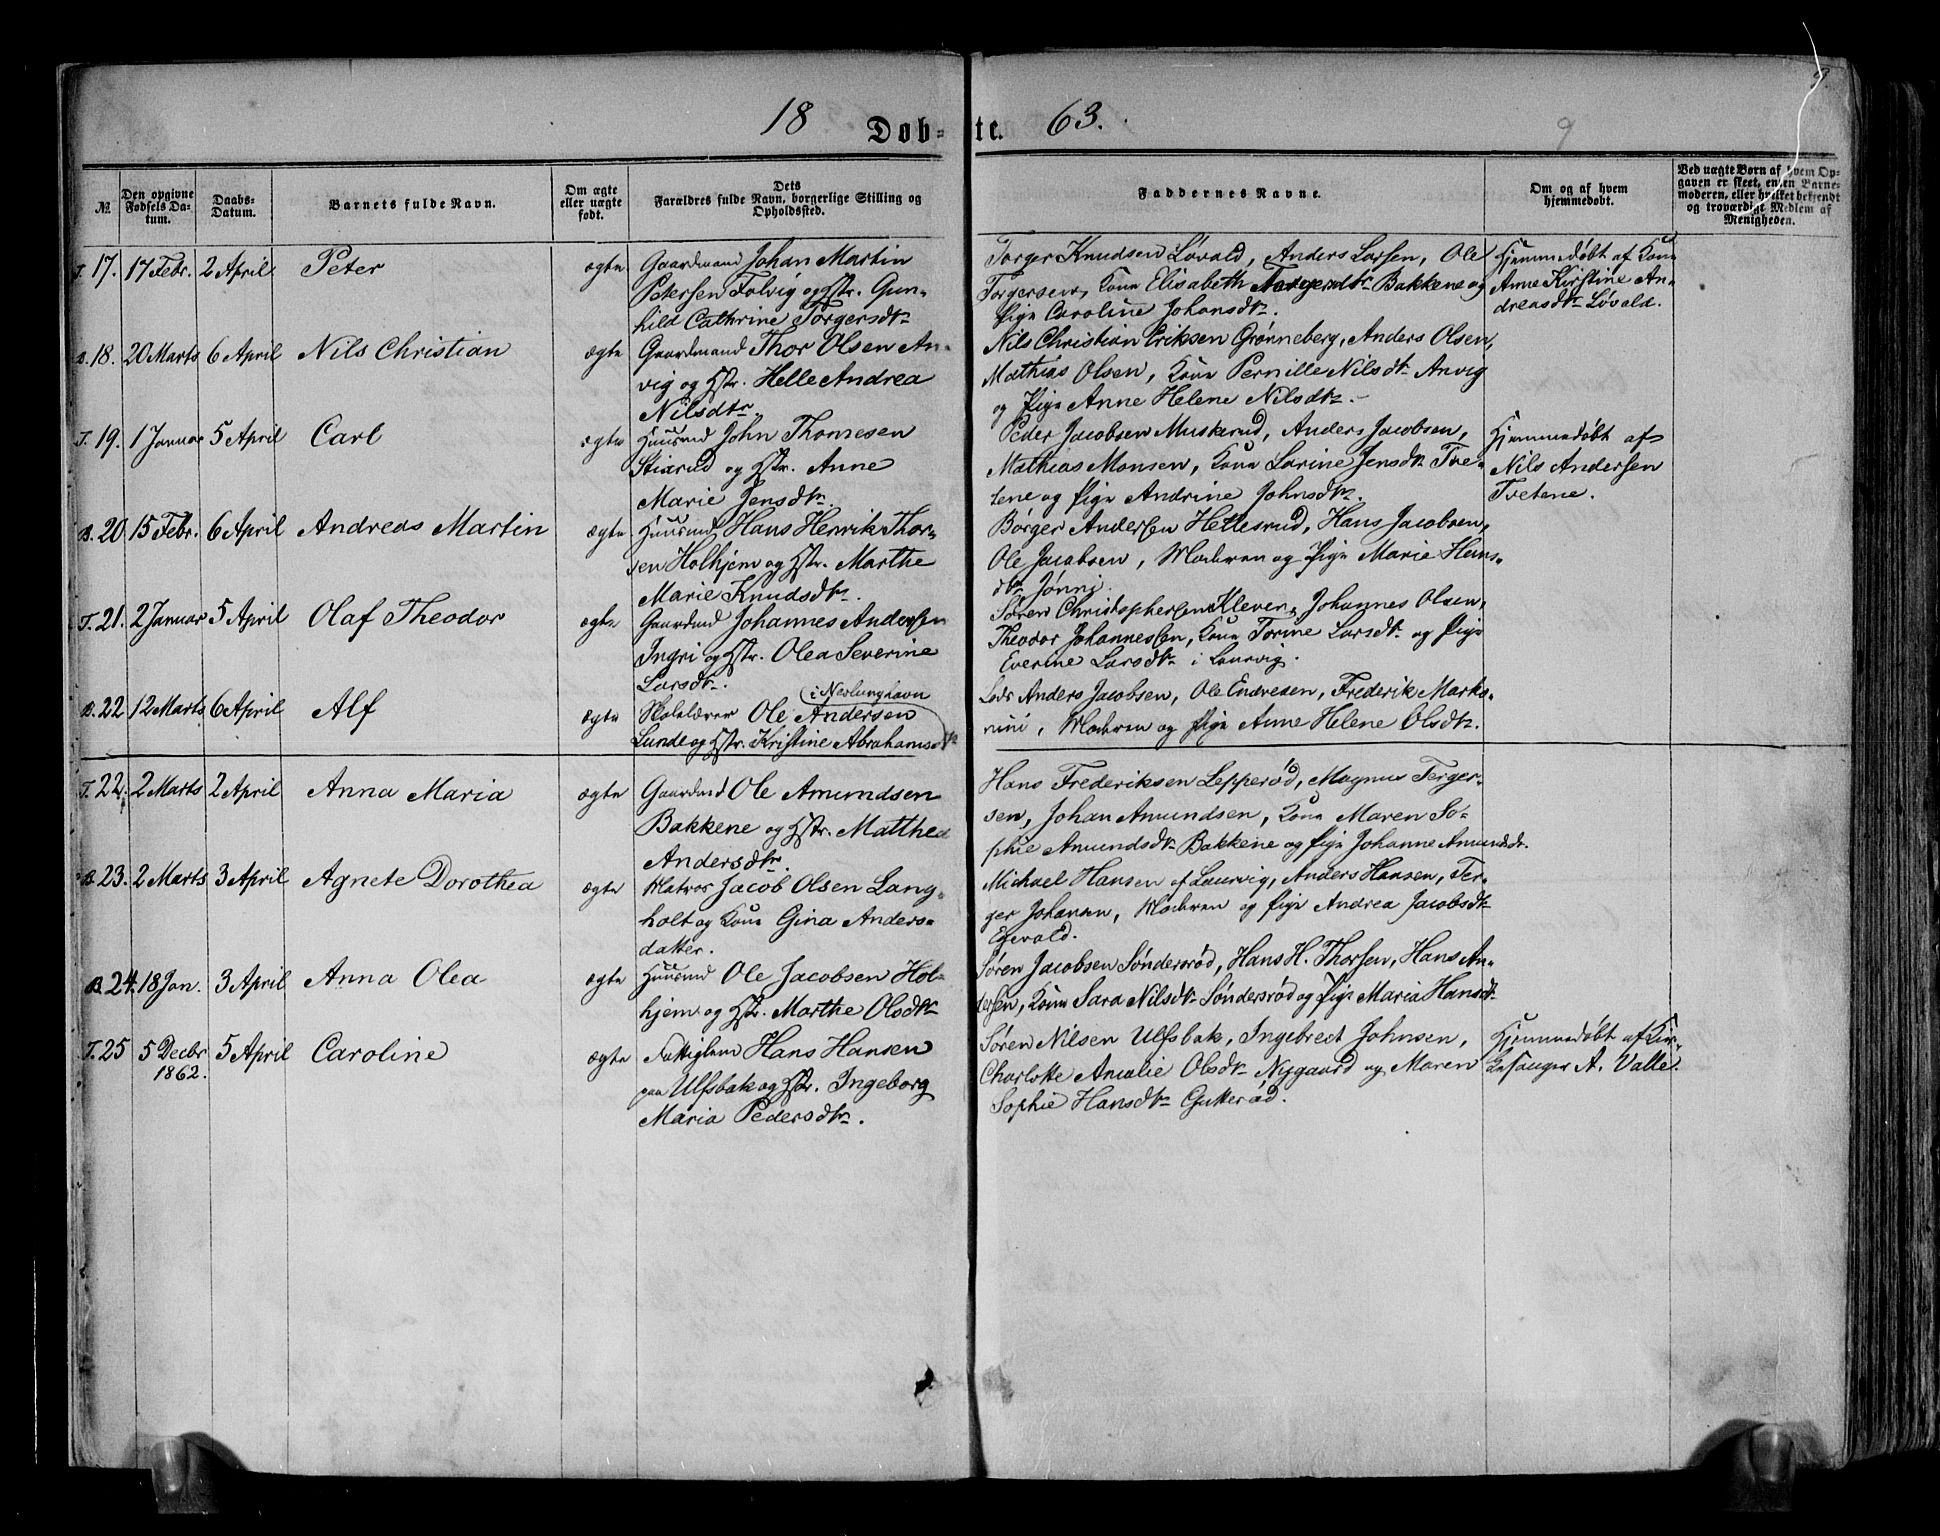 18 Døb-te. 63.
9
№
Den opgivne Fødsels Datum.
Daabs-Datum.
Barnets fulde Navn.
Om ægte eller uægte født.
Dets Forældres fulde Navn, borgerlige Stilling og Opholdssted.
Faddernes Navne.
Om og af hvem hjemmedøbt.
Ved uægte Børn af hvem Opgaven er skeet, enten Barnemoderen, eller hvilket bekjendt og troværdigt Medlem af Menigheden.
T. 17. 17 Febr. 2 April Peter ægte Gaardmand Johan Martin
Petersen Folvig og Hstr. Gun-
hild Cathrine Torgersdtr
Torger Knudsen Løvald, Anders Larsen, Ole
Torgersen, Kone Elisabeth Torgersdtr Bakkene og
Pige Caroline Johansdtr.
Hjemmedøbt af Kone
Anne Kirstine An-
dreasdtr Løvald.
B. 18. 20 Marts 6 April Nils Christian ægte Gaardmand Thor Olsen An-
vig og Hstr. Helle Andrea
Nilsdtr.
Nils Christian Eriksen Grønneberg, Anders Olsen,
Mathias Olsen, Kone Pernille Nilsdtr Anvig
og Pige Anne Helene Nilsdtr.
T. 19. 1 Januar 5 April Carl ægte Huusmd John Thomesen
Stixrud og Hstr. Anne
Marie Jensdtr.
Peder Jacobsen Muskerud, Anders Jacobsen,
Mathias Monsen, Kone Larine Jensdtr Tve-
tene og Pige Andrine Johnsdtr.
Hjemmedøbt af
Nils Andersen
Tvetene.
B. 20 15 Febr. 6 April Andreas Martin ægte Huusmd Hans Henrik Thor-
sen Holhjem og Hstr. Marthe
Marie Knudsdtr.
Børger Andersen Hellesrud, Hans Jacobsen,
Ole Jacobsen, Moderen og Pige Marie Hans-
dtr Jønni.
T. 21. 2 Januar 5 April Olaf Theodor ægte Gaardmd Johannes Andersen
Ingri og Hstr. Olea Severine
Larsdtr.
Søren Christophersen Klever, Johannes Olsen,
Theodor Johannessen, Kone Torine Larsdtr og Pige
Everine Larsdtr i Laurvig.
B. 22 12 Marts 6 April Alf ægte Skolelærer Ole Andersen
i Nevlunghavn
Lunde og Hstr. Kristine Abrahamsdtr
Anders Jacobsen, Ole Enevesen, Frederik Marku-
nini, Moderen og Pige Anne Helene Olsdtr.
T. 22. 2 Marts 2 April Anna Maria ægte Gaardmd Ole Amundsen
Bakkene og Hstr. Matthea
Andersdtr.
Hans Frederiksen Lepperød, Magnus Terger-
sen, Johan Amundsen, Kone Maren So-
phie Amundsdtr Bakkene og Pige Johanne Amundsdtr.
B. 23. 2 Marts 3 April Agnete Dorothea ægte Matros Jacob Olsen Lang-
holt og Kone Gina Anders-
datter.
Michael Hansen af Laurvig, Anders Hansen, Ter-
ger Johansen, Moderen og Pige Andrea Jacobsdtr
Egevald.
B. 24. 18 Jan. 3 April Anna Olea ægte Huusmd Ole Jacobsen Hol-
hjem og Hstr. Marthe Olsdtr
Søren Jacobsen Søndersrød, Hans H. Thorsen, Hans An-
dersen, Kone Sara Nilsdtr Søndersrød og Pige Maria Hansdtr
T. 25 5 Decbr 1862. 5 April Caroline ægte Fattiglem Hans Hansen
paa Ulfsbak og Hstr. Ingeborg
Maria Pedersdtr.
Søren Nilsen Ulfsbak, Ingebrect Johnsen,
Charlotte Amalie Olsdtr Nygaard og Maren
Sophie Hansdtr Gutterød.
Hjemmedøbt af Kir-
kesanger A. Valle.